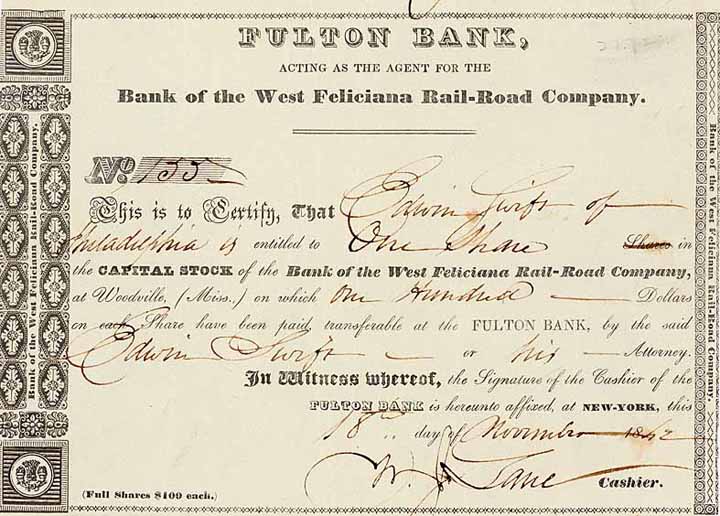 FULTON BANK,
ACTING AS THE AGENT FOR THE
Bank of the West Feliciana Rail-Road Company.
No. 155
This is to Certify, That Edwin Swift of
Philadelphia is entitled to One Share Shares in
the CAPITAL STOCK of the Bank of the West Feliciana Rail-Road Company,
at Woodville, (Miss.) on which One Hundred — Dollars
on each Share have been paid, transferable at the FULTON BANK, by the said
Edwin Swift — or his — Attorney.
In Witness whereof, the Signature of the Cashier of the
FULTON BANK is hereunto affixed, at NEW-YORK, this
18th day of November 1842
Lane Cashier.
(Full Shares $100 each.)
Bank of the West Feliciana Rail-Road Company.
Bank of the West Feliciana Rail-Road Company.